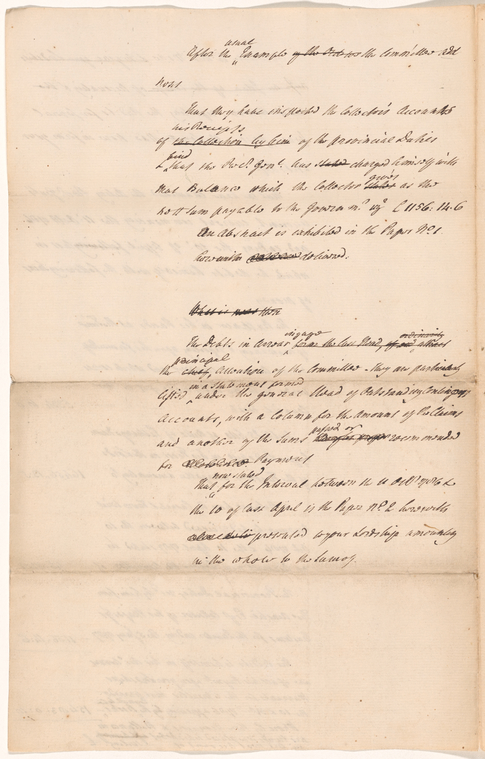 usual
After the Example of the for the Committee
That they have inspected the Collector's Accounts
his Receipts
of the Collection of the Provincial Duties
find
& that the Rec.r Gen.l has stated charged himself with
gives
that Balance which the Collector states as the
nett Sum payable to the Governm.t £1156.14.6
An Abstract is exhibited in the Paper No. 1
herewith delivered.
What is next
engage
The Debts in Arrear form the last Head,
principal
the chief Attention of the Committee. They are particularly
in a statement framed
under the general Head of Outstanding Contingent
Accounts, with a Column for the Amount of the Claims
passed or
and another of the Sums recommended
for Payment
now stated
That for the Interval between the 11 Oct.r 1786 &
the 10 of last April is the Paper No. 2 herewith
presented to your Lordship amounting
in the whole to the Sum of